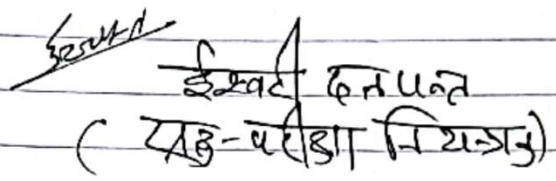 ईश्वरी दत्त पन्त
(सह-परीक्षा नियन्त्रक)